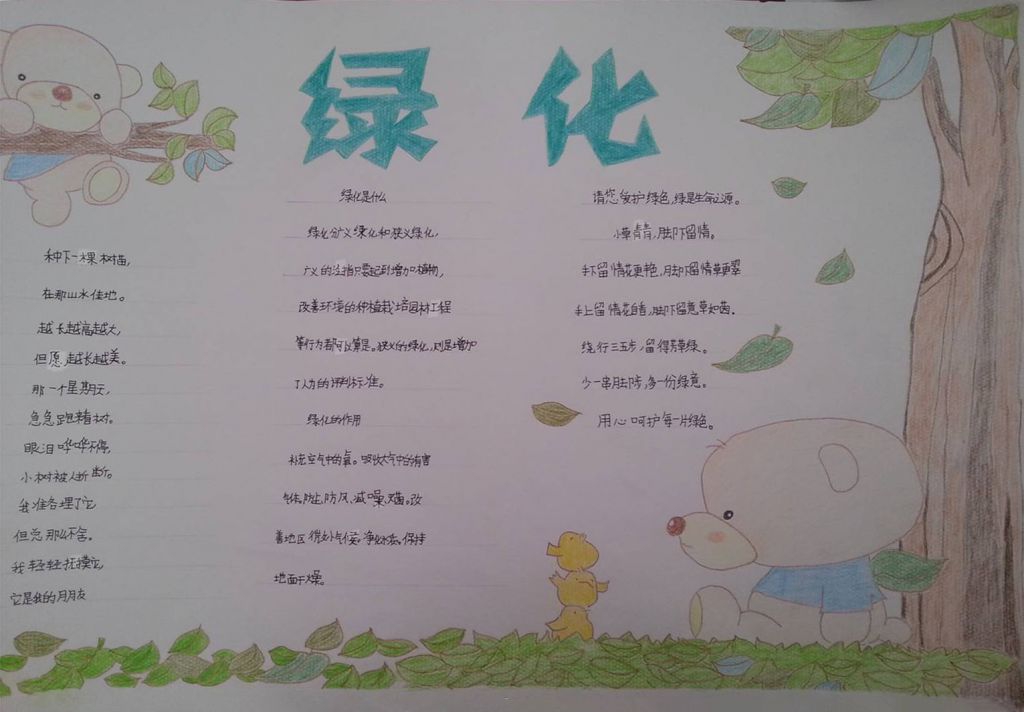 绿化
种下一棵树苗,
在那山水佳地。
越长越高越大,
但愿越长越美。
那一个星期天,
急急跑精树。
眼泪哗哗不停,
小树被人折断。
我准备埋了它
但觉那么不舍。
我轻轻抚摸它,
它是我的朋友
绿化是什么
绿化分广义绿化和狭义绿化,
广义的泛指只要起到增加植物,
改善环境的种植栽培园林工程
等行为都可以算是。狭义的绿化,则是增加
了人为的评判标准。
绿化的作用
补充空气中的氧。吸收大气中的有害
气体,防尘,防风,减噪,灭菌。改
善地区微小气候。净化水态。保持
地面干燥。
请您爱护绿色,绿是生命之源。
小草青青,脚下留情。
手下留情花更艳,脚下留情草更翠
手上留情花自香,脚下留意草如茵。
绕行三五步,留得芳草绿。
少一串脚步,多一份绿意。
用心呵护每一片绿色。